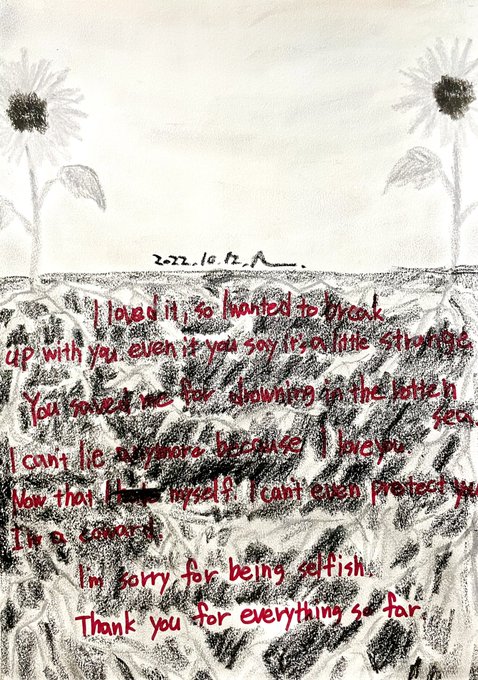 2022.10.12.
I loved it, so I wanted to break
up with you. even if you say it's a little strange
You saved me for drowning in the rotten
sea.
I cant lie anymore because I love you
Now that I myself. I can't even protect you
I'm a coward.
I'm sorry for being selfish.
Thank you for everything so far.